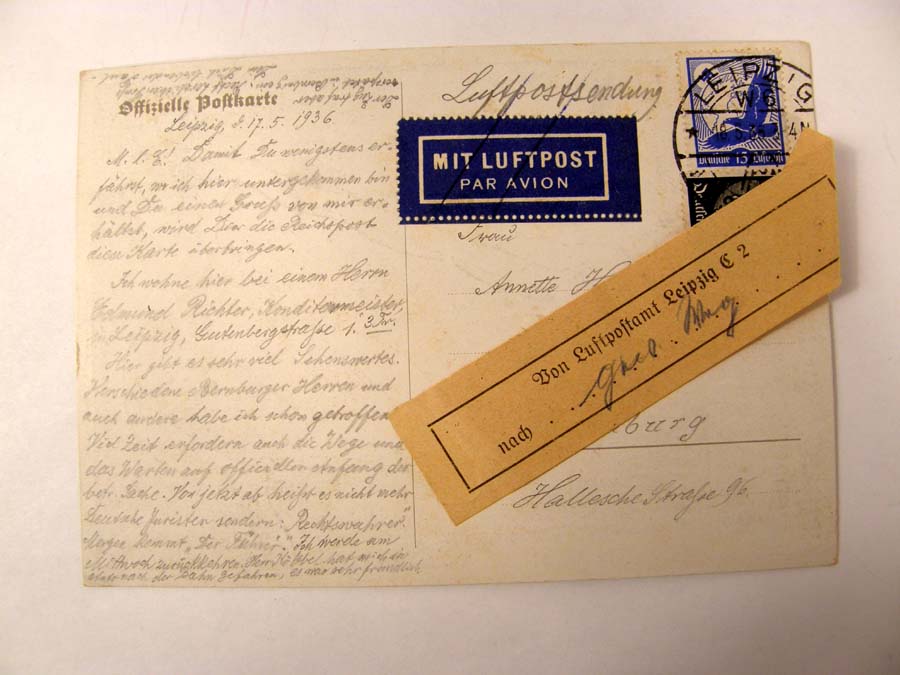 Offizielle Postkarte
Leipzig, d. 17.5. 1936.
M. l. E.! Damit Du wenigstens er-
fährst, wo ich hier untergekommen bin
und Du einen Gruss von mir er-
hältst, wird Dir die Reichspost
diese Karte überbringen.
Ich wohne hier bei einem Herrn
Edmund Richter, Konditormeister,
in Leipzig, Gutenbergstraße 1. 3 Tr.
Hier gibt es sehr viel Sehenswertes.
Verschiedene Bernburger Herren und
auch andere habe ich schon getroffen.
Viel Zeit erfordern auch die Wege und
das Warten auf offiziellen Anfang der
betr. Sache. Von jetzt ab heißt es nicht mehr
Deutsche Juristen sondern: "Rechtswahrer".
Morgen kommt "Der Führer". Ich werde am
Mittwoch zurückkehren. Herr hat mich im
Auto nach der Bahn gefahren, es war sehr freundlich
Luftpostsendung
MIT LUFTPOST
PAR AVION
LEIPZIG
W 6
18.5.36
Frau
Annette H
burg
Hallesche Straße 96.
Von Luftpostamt Leipzig C 2
nach